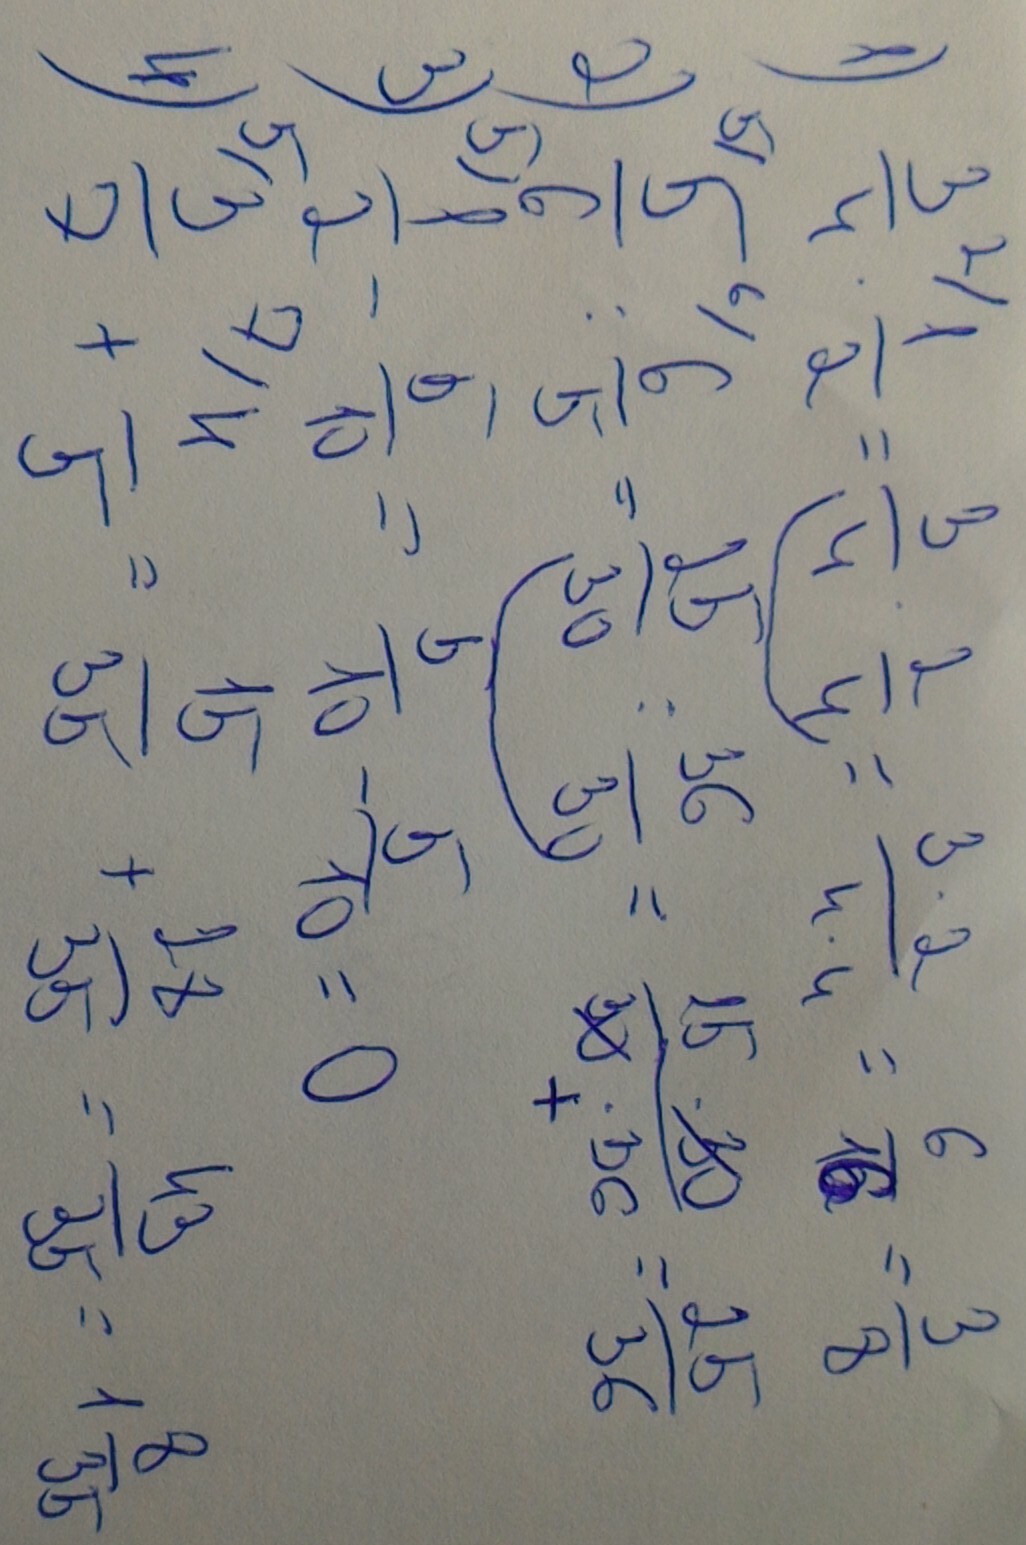 1) 3/4 · 2/ 1/2 = 3/4 · 2/4 = 3·2/4·4 = 6/16 = 3/8
2) 5/ 5/6 : 6/ 6/5 = 25/30 : 36/30 = 25·30/30·36 = 25/36
+
3) 5/ 1/2 - 1/ 5/10 = 5/10 - 5/10 = 0
4) 5/ 3/7 + 7/ 4/5 = 15/35 + 28/35 = 43/35 = 1 8/35